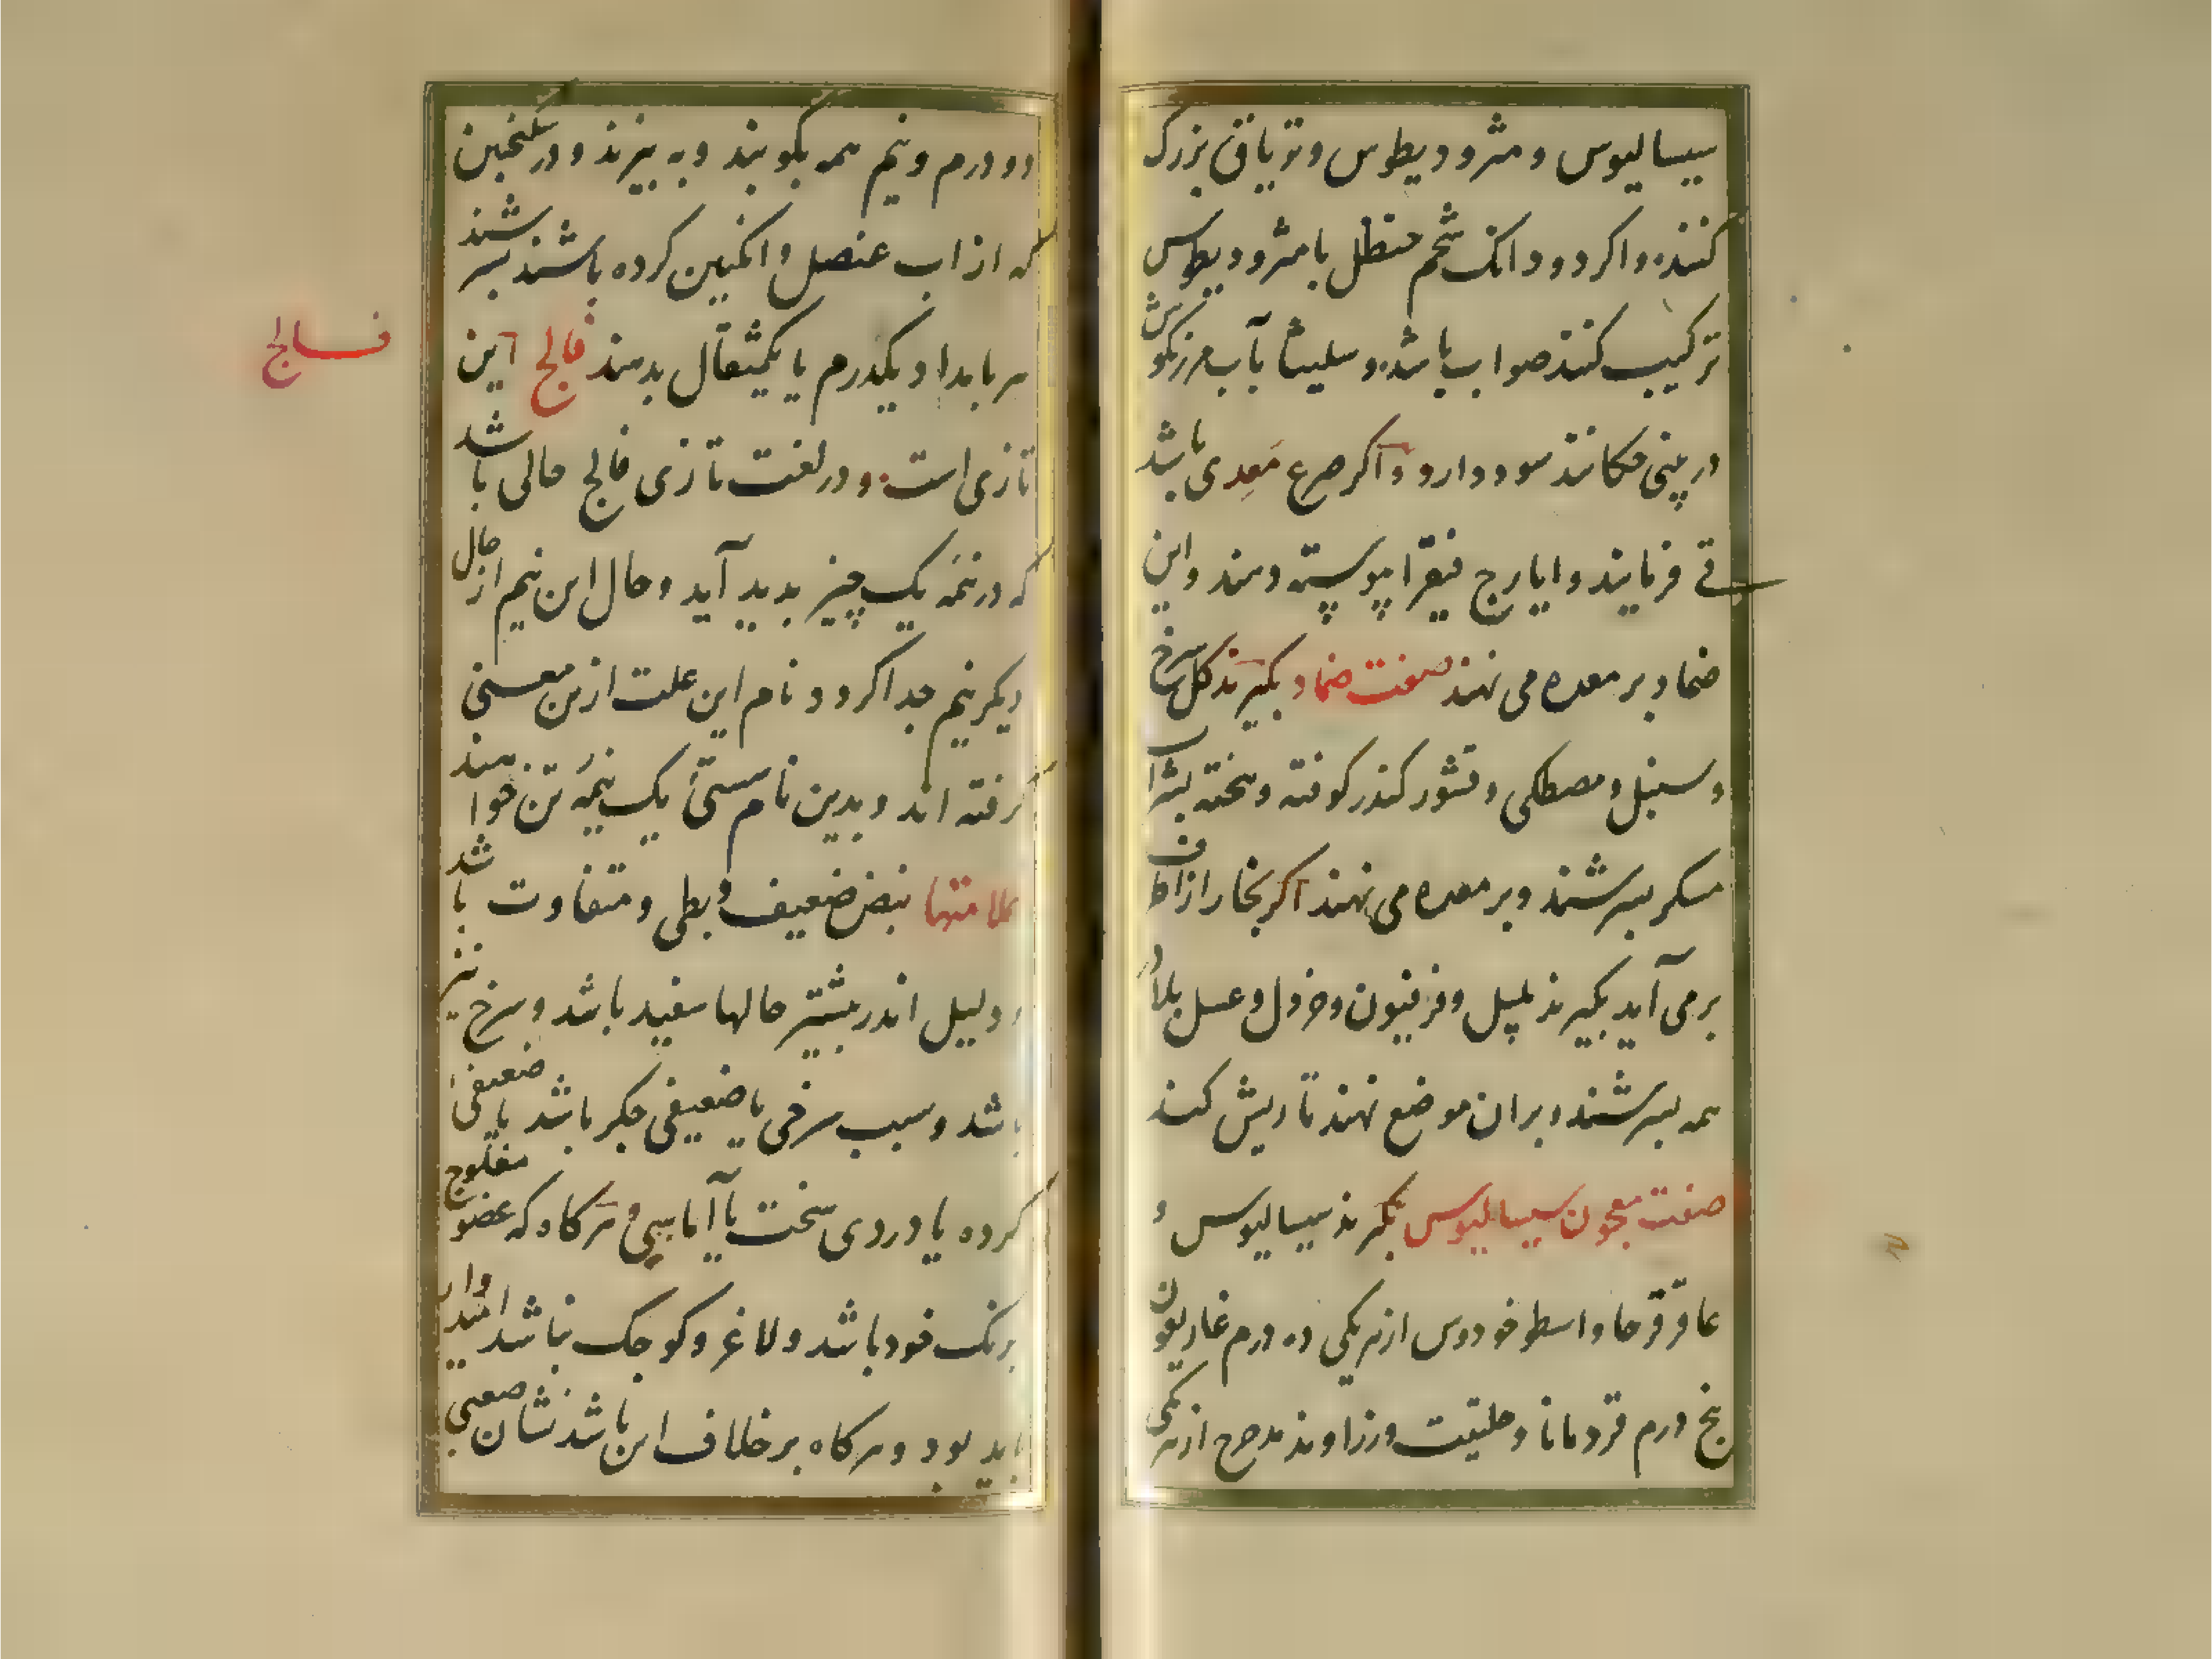 سیسالیوس و مثرودیطوس و تریاق بزرک
کنند. واکر دو دانک شحم حنظل با مثرودیطوس
ترکیب کنند صواب باشد. و سلیثا بآب مرزنکوش
در بینی چکانند سود دارد و اکر صرع معدی باشد
قی فرمایند و ایارج فیقرا پیوسته دهند و این
ضماد بر معده می نهند صفت ضماد بکیرند کل سرخ
و سنبل و مصطکی و قشور کندر کوفته و بیخته بشراب
مسکر بسرشند و بر معده می نهند اکر بخار از اطراف
برمی آید بکیرند پلپل و فرفیون و خردل و عسل بلادر
همه بسرشند و بران موضع نهند تا ریش کند
صفت معجون سیسالیوس بکیرند سیسالیوس و
عاقرقرحا و اسطوخودوس از هر یکی ده درم غاریقون
پنج درم قردمانا و حلتیت و زراوند مدحرج از هر یکی
دو درم و نیم همه بکوبند و به بیزند و در سکنجبین
که از اب عنصل و انکبین کرده باشند بسرشند
هر بامداد یکدرم یا یکمثقال بدهند فالج این
فالج
تازی است. و در لغت تازی فالج حالی باشد
که در نیمه یک چیز بدید آید و حال این نیم از حال
دیکر نیم جدا کردد و نام این علت ازین معنی
کرفته اند و بدین نام سستی یک نیمه تن خواهند
علامتها نبض ضعیف و بطی و متفاوت باشد
و دلیل اندر بیشتر حالها سفید باشد و سرخ نیز
باشد و سبب سرخی یا ضعیفی جکر باشد یا ضعیفی
کرده یا دردی سخت یا آماسی و هرکاه که عضو مفلوج
برنک خود باشد و لاغر و کوجک نباشد امیدوار
باید بود و هرکاه برخلاف این باشد نشان صعبی